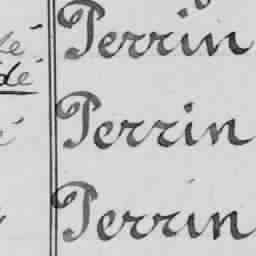 Perrin
Perrin
Perrin